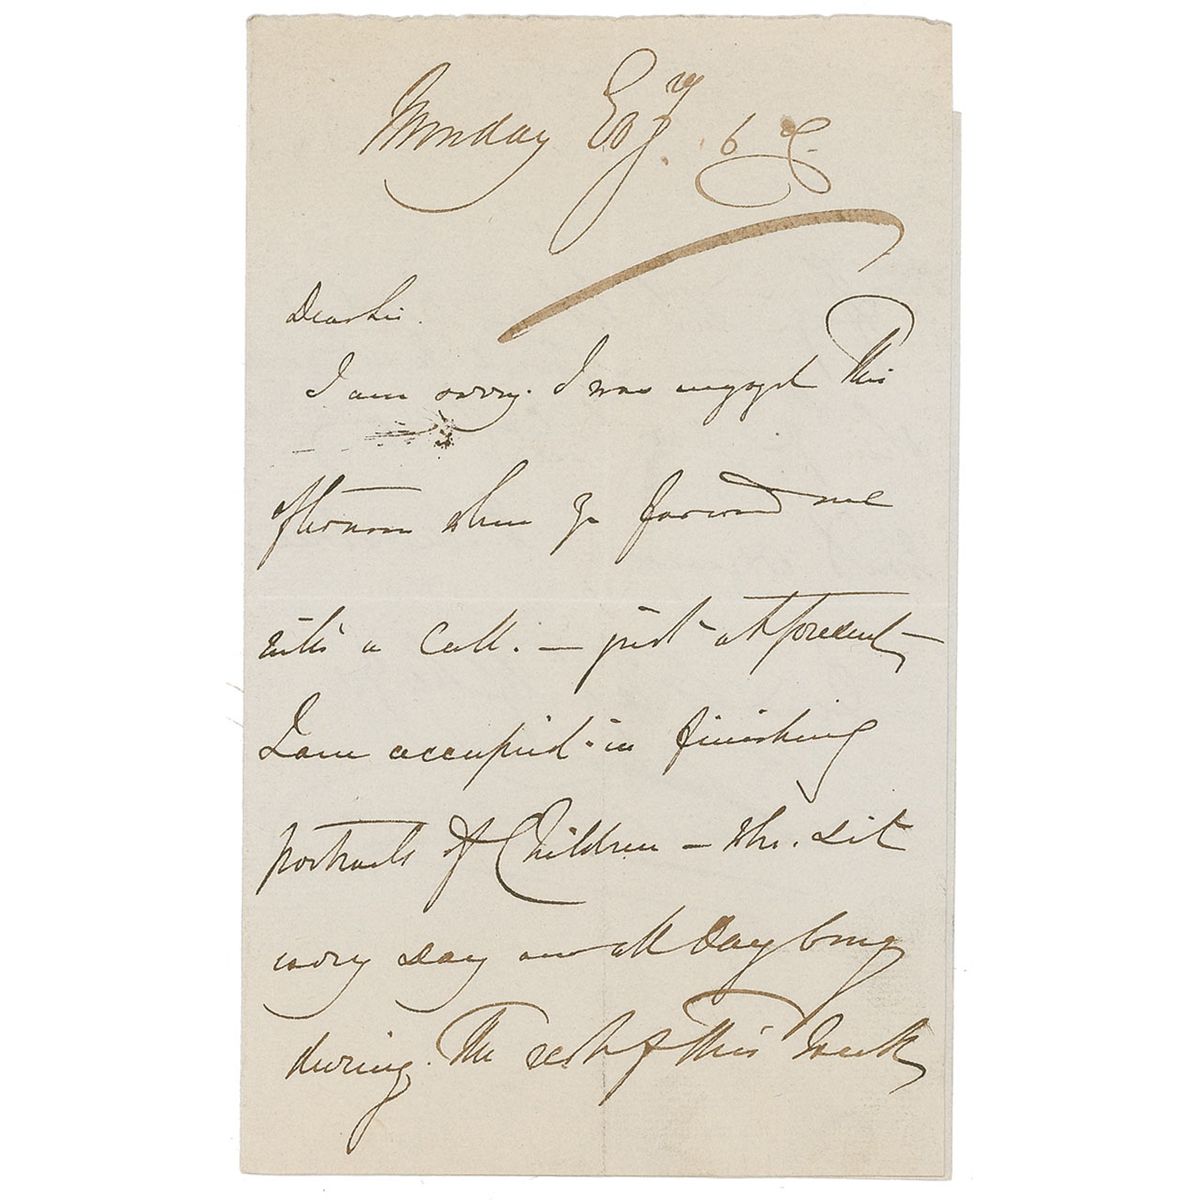 Monday Esqy. 6
Dear Sir.
I am sorry. I was engaged this
afternoon when yo favored me
with a call. — just at present
I am occupied in finishing
portraits of Children — who. sit
every day and all day long
during. the rest of this week